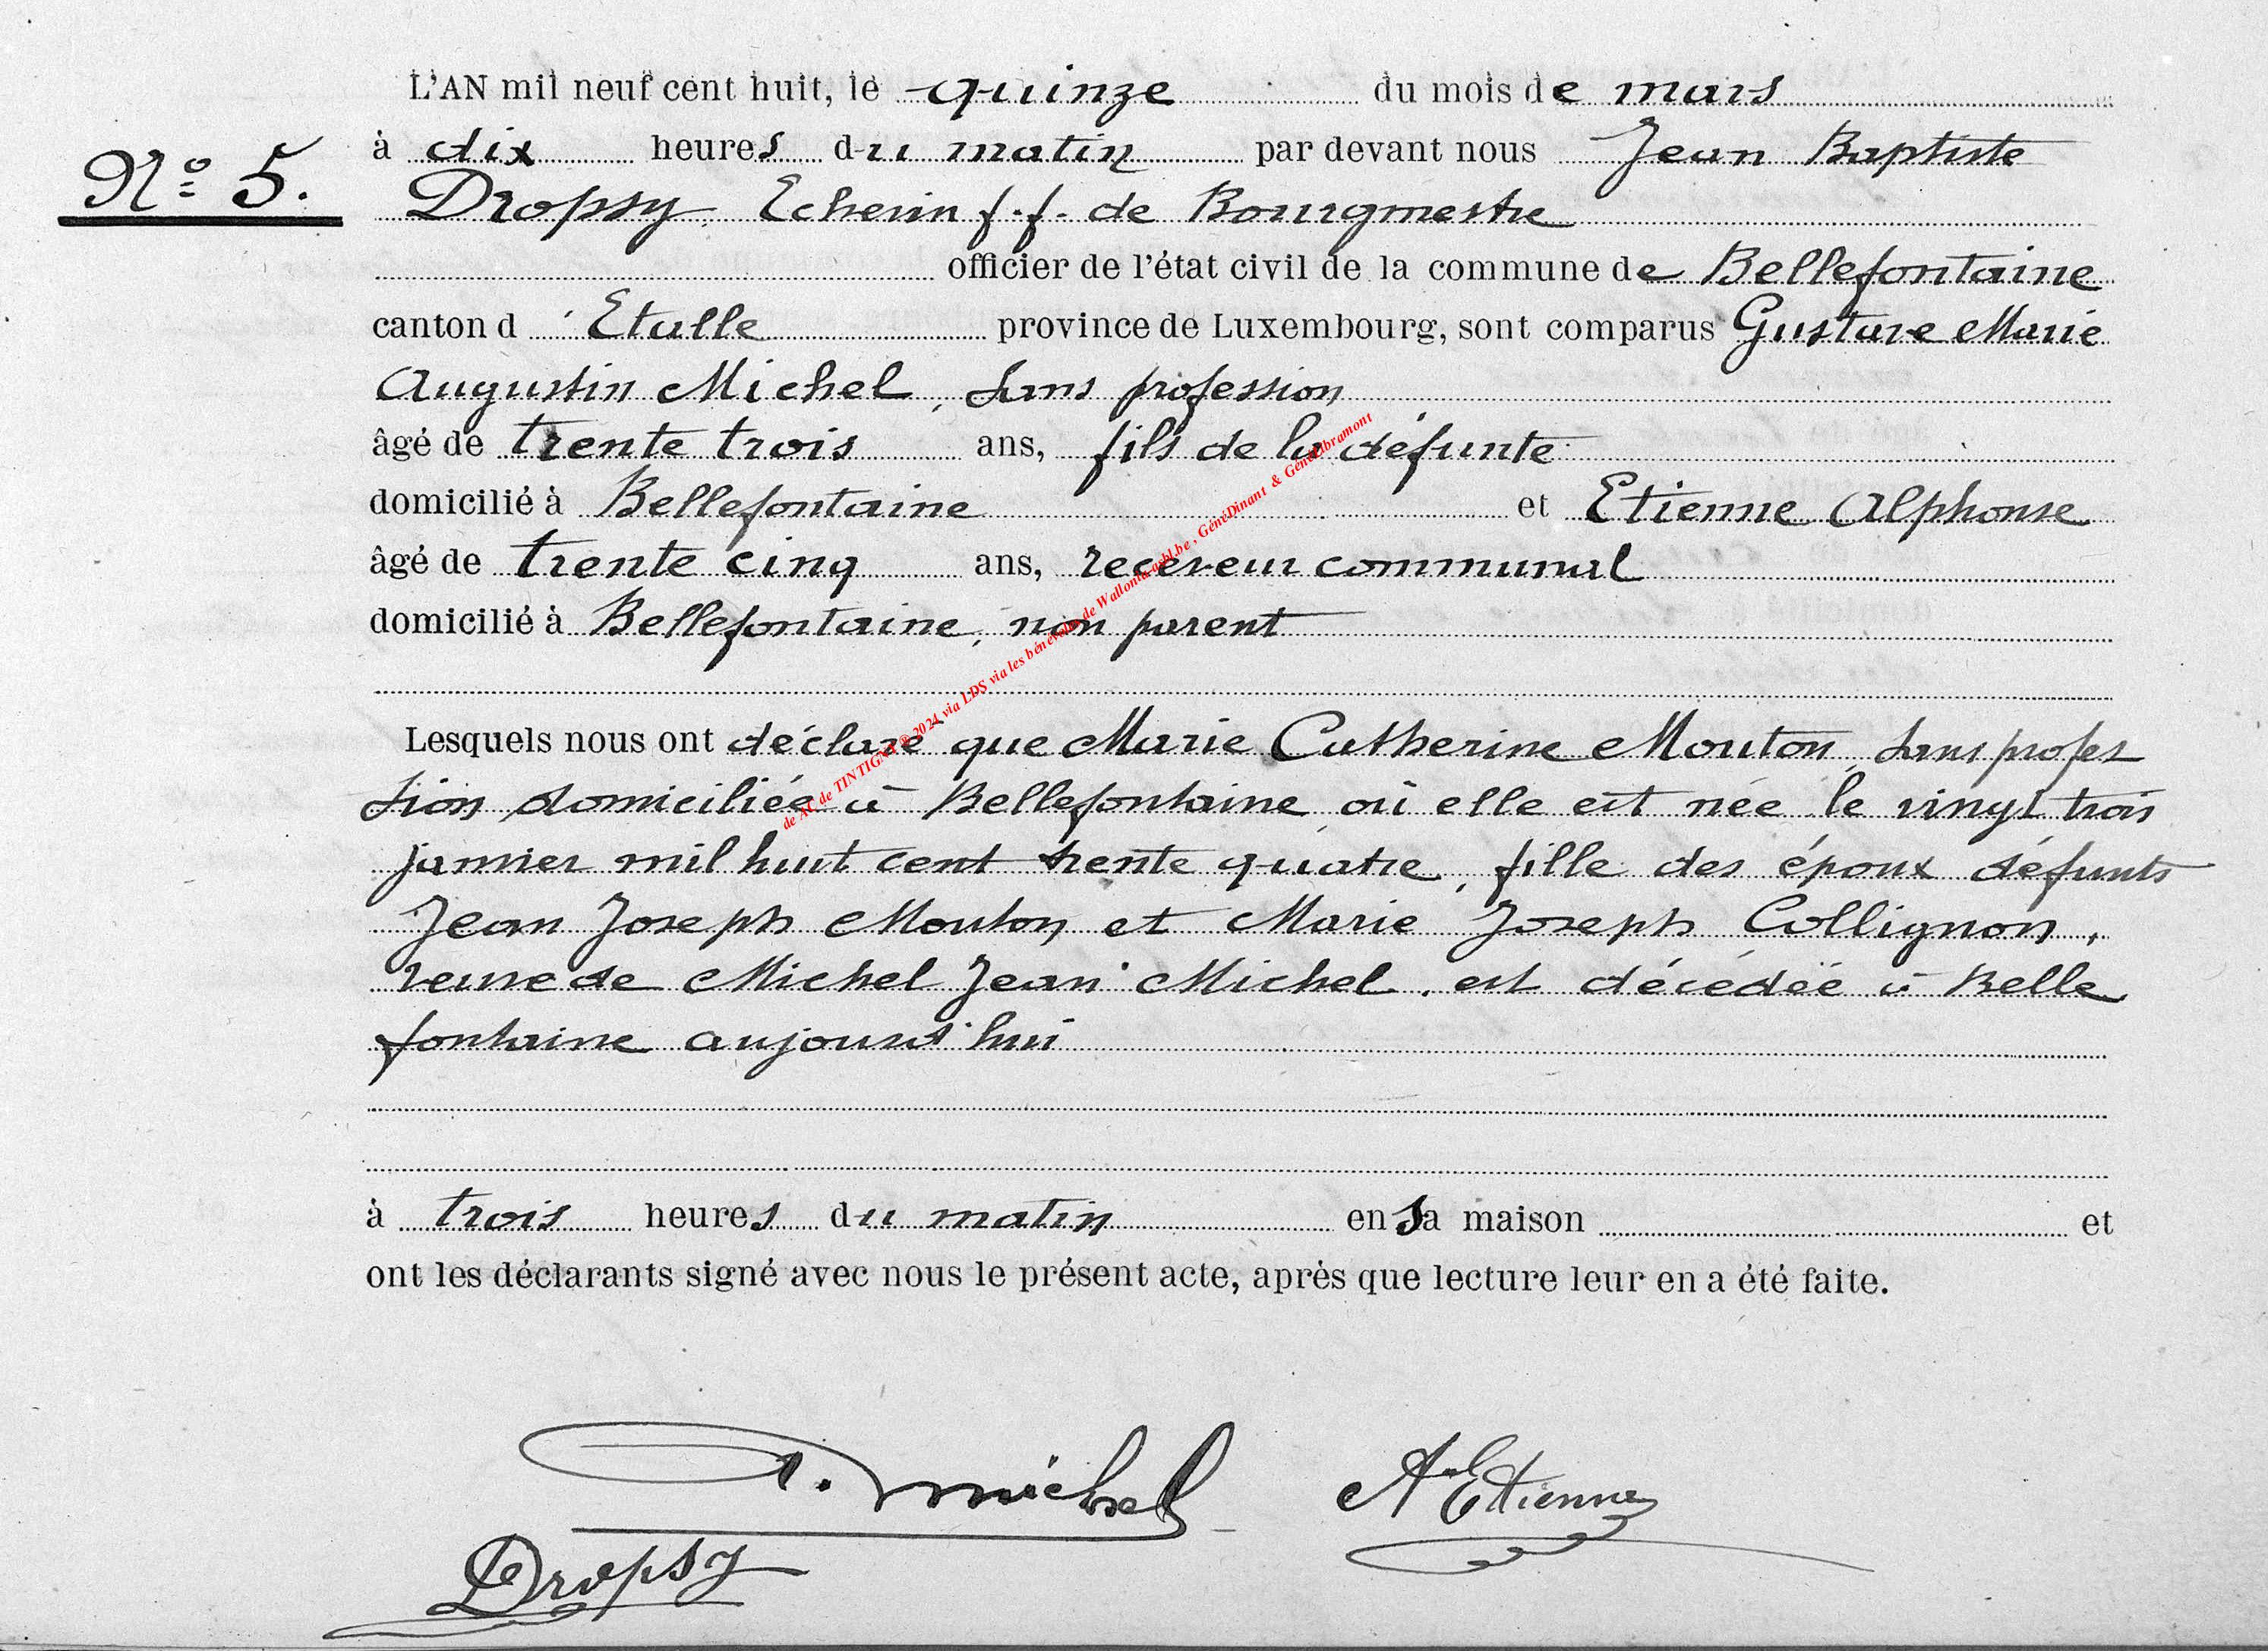 L'AN mil neuf cent huit, le quinze du mois de mars
N° 5.
à dix heures du matin par devant nous Jean Baptiste
Dropsy, Echevin f.f. de Bourgmestre
officier de l'état civil de la commune de Bellefontaine
canton d'Etalle province de Luxembourg, sont comparus Gustave Marie
Augustin Michel, sans profession
âgé de trente trois ans, fils de la défunte
domicilié à Bellefontaine et Etienne Alphonse
âgé de trente cinq ans, receveur communal
domicilié à Bellefontaine, non parent
Lesquels nous ont déclaré que Marie Catherine Mouton, sans profes
sion domiciliée à Bellefontaine où elle est née le vingt trois
janvier mil huit cent trente quatre, fille des époux défunts
Jean Joseph Mouton et Marie Joseph Collignon,
veuve de Michel Jean Michel, est décédée à Belle
fontaine aujourd'hui
à trois heures du matin en sa maison et
ont les déclarants signé avec nous le présent acte, après que lecture leur en a été faite.
Michel
A Etienne
Dropsy
de AC de TINTIGNY ® 2024 via LDS via les bénévoles de Wallonia asbl.be, GénéDinant & GénéLibramont